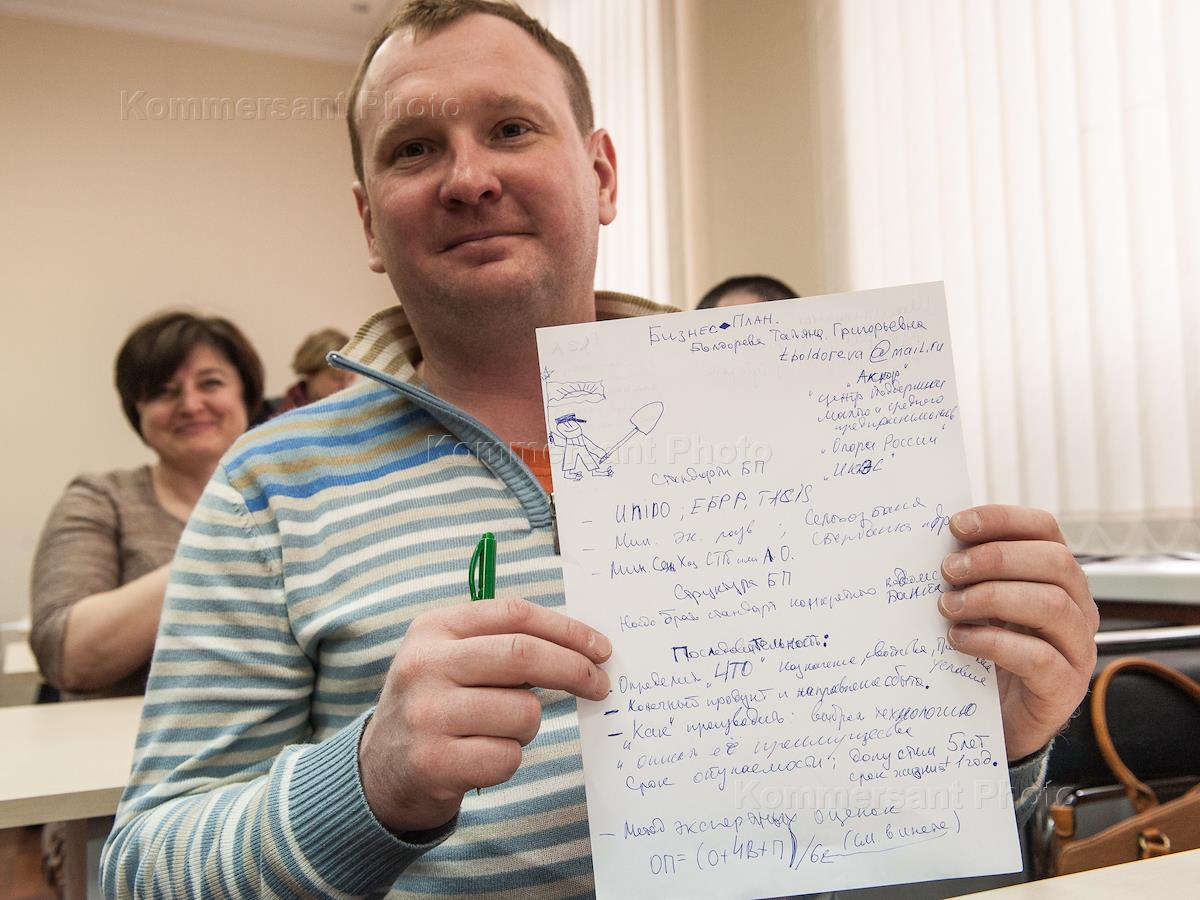 Kommersant Photo
Бизнес-План.
Болдорева Татьяна Григорьевна
tboldoreva@mail.ru
"Акпор"
"Центр поддержки
малого и среднего
предпринимательства
"Опора России"
Kommersant Photo
Стандарты БП
- UNIDO; ЕБРР, TACIS
- Мин. эк. разв ; Сельхозбанка
- Мин. Сель Хоз СТП или А.О. Сбербанка
Структура БП
Надо брать стандарт конкретно
банка
Последовательность:
- Определить "ЧТО" назначение, свойства,
- Конечный продукт и направления сбыта. Условия
- "Как" производить: выбрал технологию
и описал её преимущества
Срок окупаемости; допустим 5 лет
срок жизни + 1 год.
Kommersant Photo
- Метод экспертных оценок
ОП = (О+4В+П)/6 (см в инете)